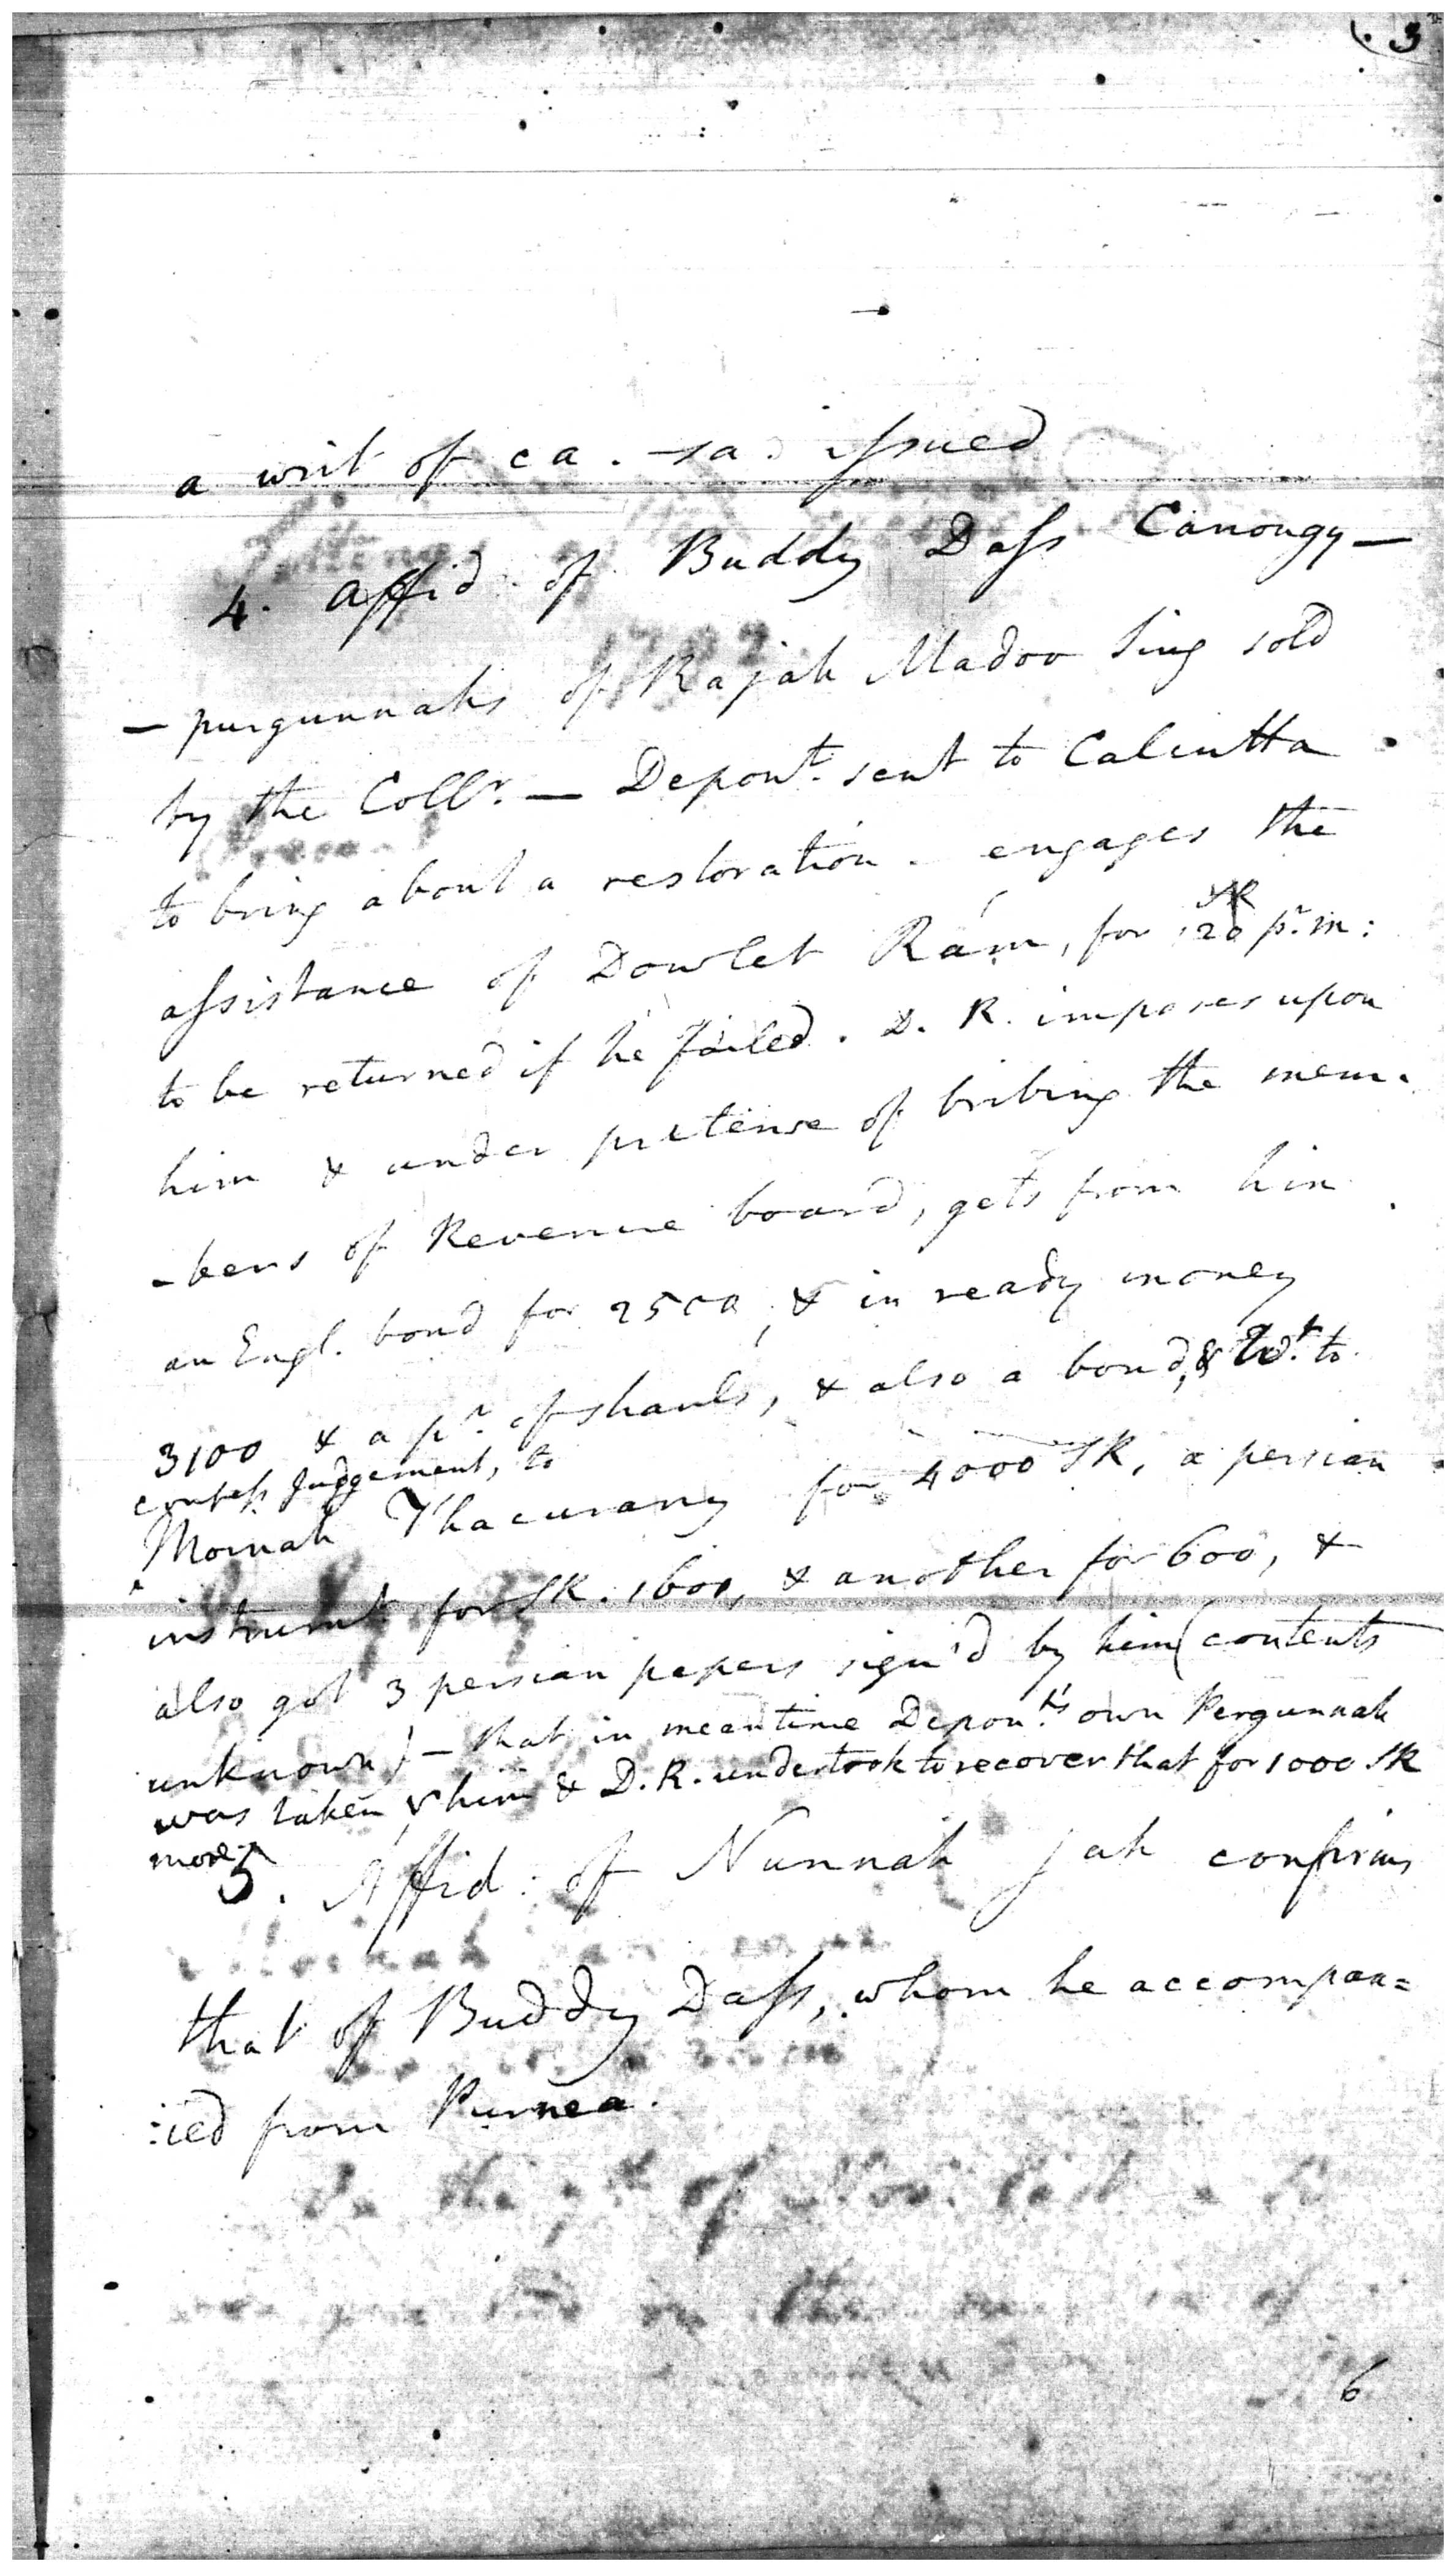 (. 3
a writ of ca. sa. issued
4. Affid. of Buddy Dass Canongy —
— purgunnahs of Rajah Madoo Sing sold
by the Collr. — Depont. sent to Calcutta
to bring about a restoration — engages the
SR
assistance of Dowlet Rám, for 20 pr. m:
to be returned if he failed. D. R. imposes upon
him & under pretense of bribing the mem-
-bers of Revenue board, gets from him
an Engl. bond for 2500, & in ready money
3100 & a pr. of shauls, & also a bond, & Wt. to
confess Judgement, to
Mornah Thacurany for 4000 SR, a persian
instrumt. for SR. 1600, & another for 600, &
also got 3 persian papers sign'd by him (contents
unknown) — that in mean time Depont's own Pergunnah
was taken him & D. R. undertook to recover that for 1000 SR
more
5. Affid: of Nunnah Jah confirms
that of Buddy Dass, whom he accompan=
:ied from Purnea.
6